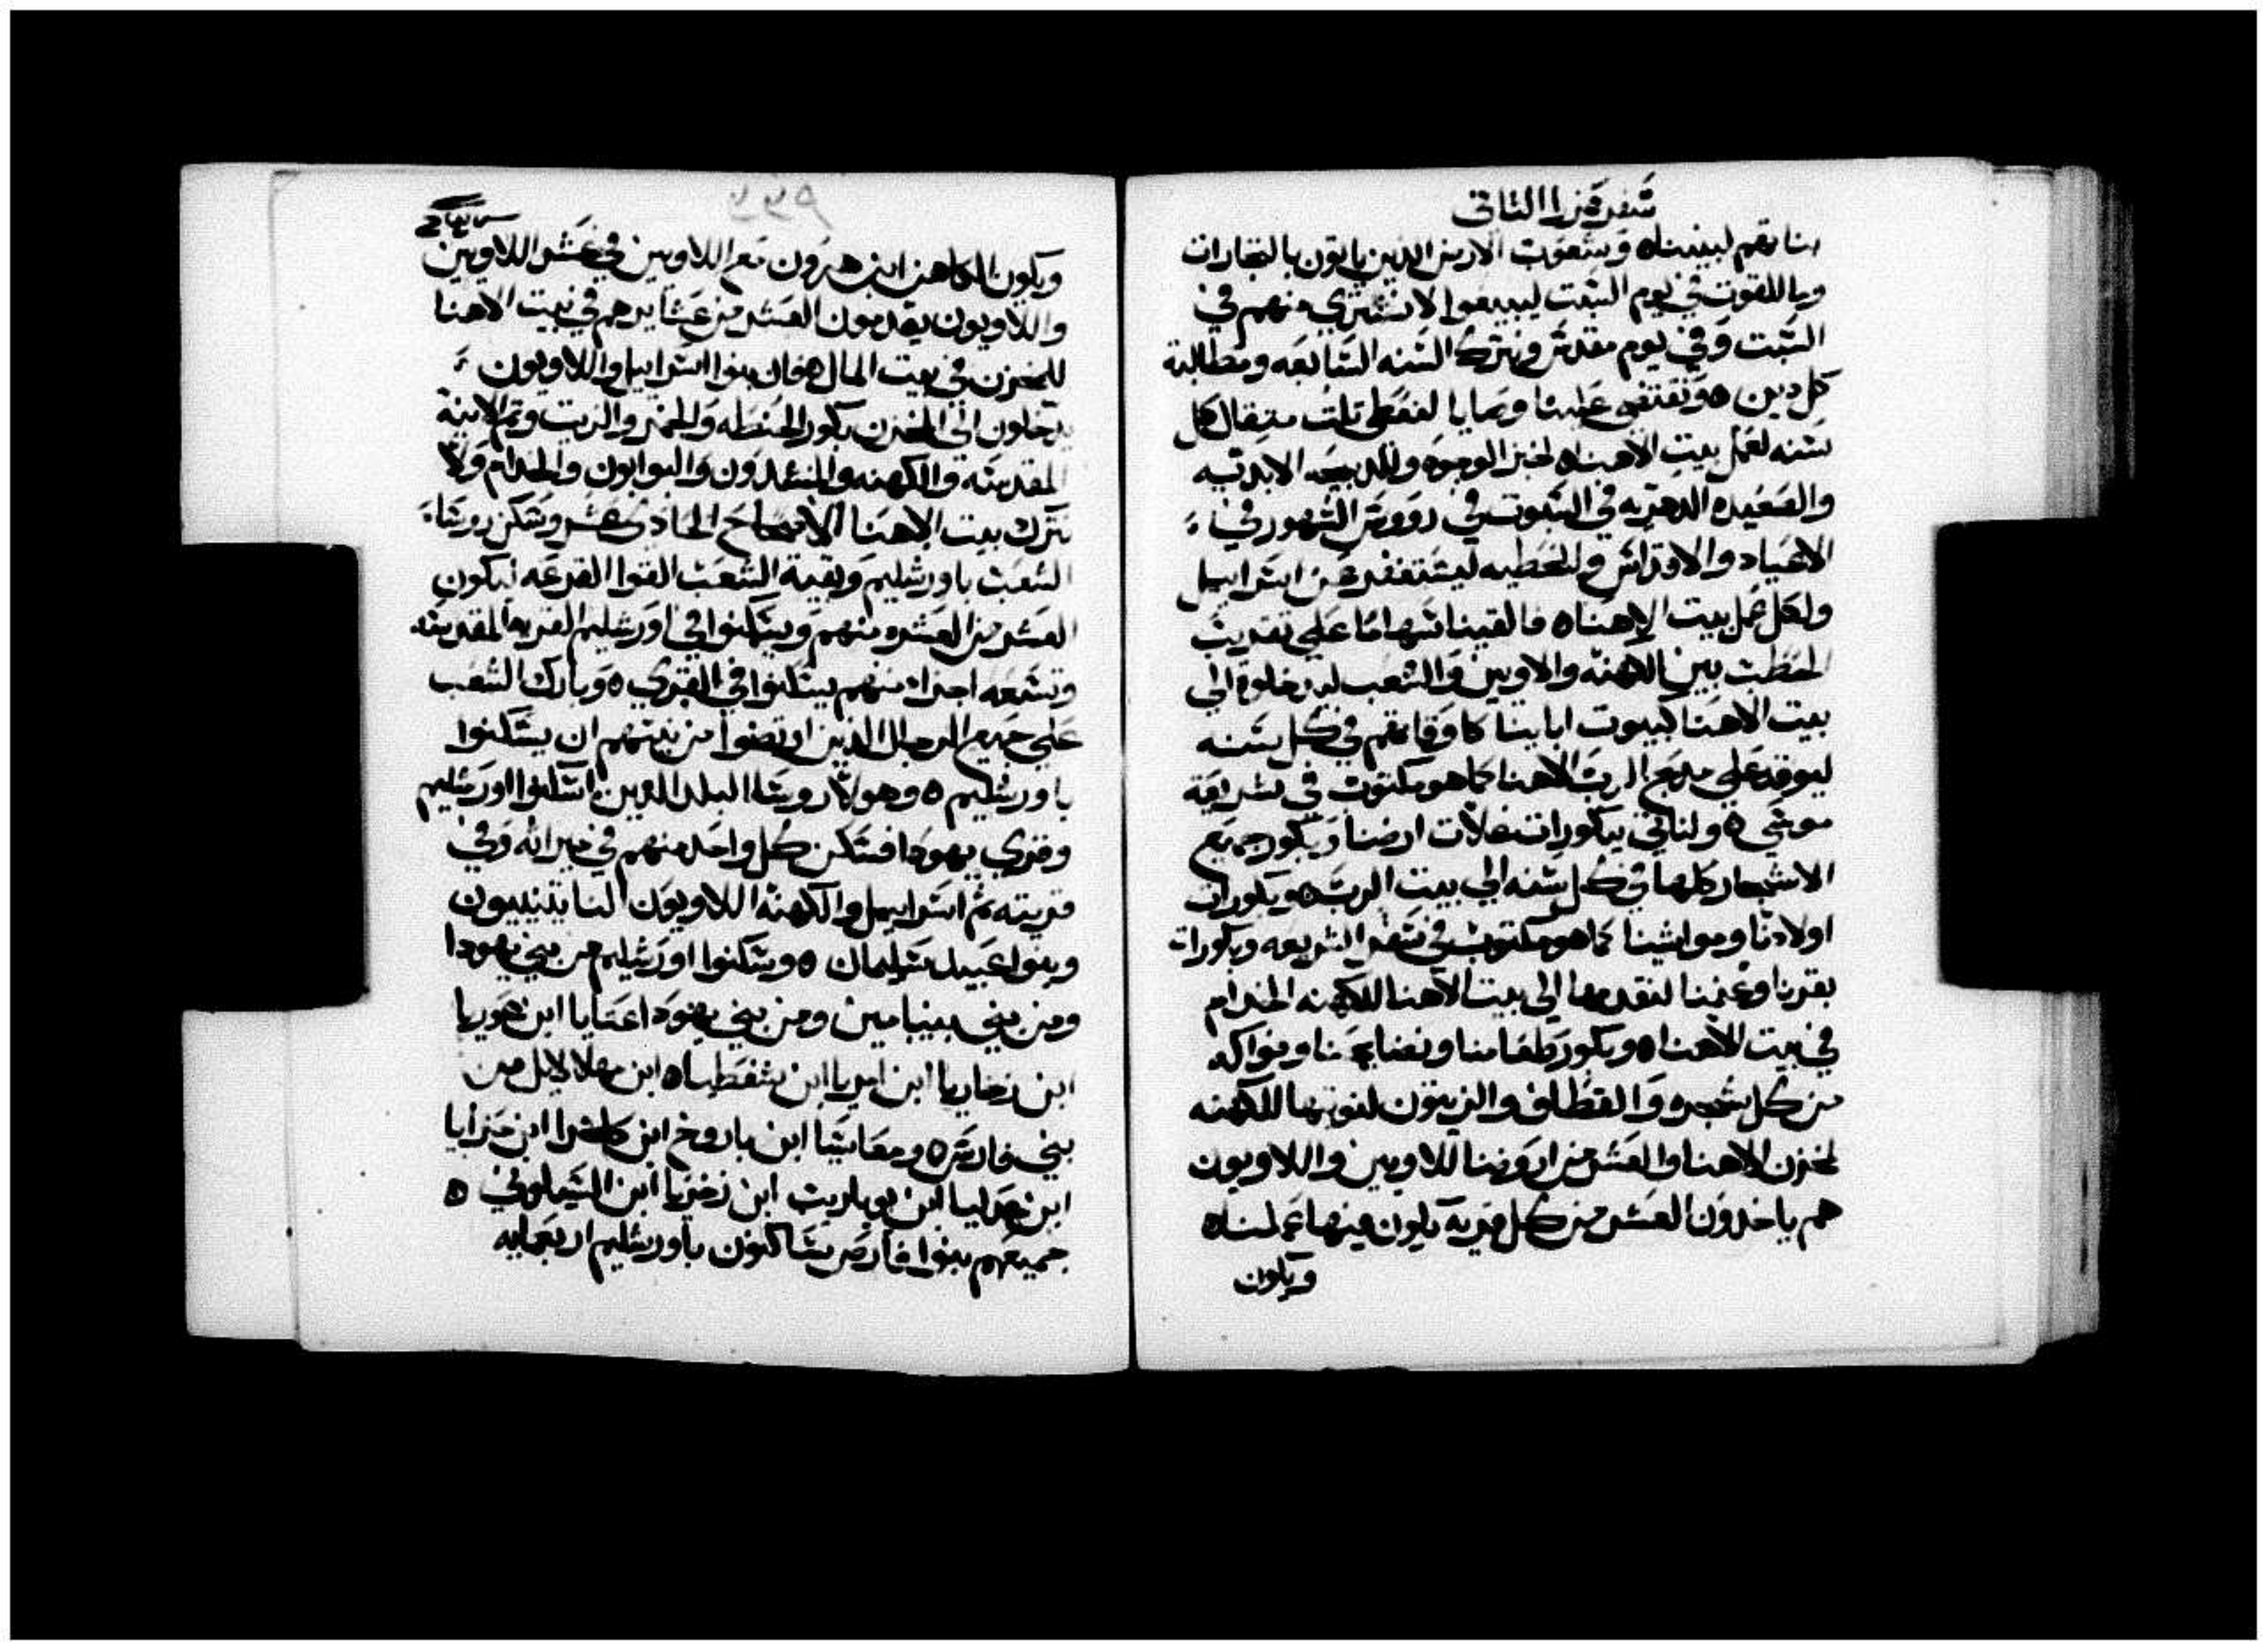 سفر عزرا الثاني
بناتهم لبنيناه وشعوب الارض الذين ياتون بالتجارات
وبالقوت في يوم السبت ليبيعوا لا نشتري منهم في
السبت وفي يوم مقدس ونترك السنه السابعه ومطالبة
كل دين ه ونقتفي علينا وصايا لنعطي تلت متقال كل
سنه لعمل بيت الاهناه لخبز الوجوه وللدبيحه الابديه
والصعيده الدهريه في السبوت في رووس الشهور في
الاعياد والاقداس والخطيه ليستغفر عن اسراييل
ولكل عمل بيت الاهناه فالقينا سهاما على تقديب
الحطب بين الكهنه والاويين والشعب ليدخلوه الي
بيت الاهنا كبيوت اباينا كاوقاتهم في كل سنه
ليوقد علي مدبح الرب الاهنا كما هو مكتوب في شريعة
موسي ه ولناتي ببكورات غلات ارضنا وبكور جميع
الاشجار كلها في كل سنه الي بيت الرب ه وبكورات
اولادنا ومواشينا كما هو مكتوب في سفر الشريعه وبكورات
بقرنا وغنمنا لنقدمها الي بيت الاهنا للكهنه الخدام
في بيت الاهناه وبكور طعامنا ونصايبنا وفواكه
من كل شجره والقطاف والزيتون لنوتيها للكهنه
لمخزن الاهنا والعشر من ارضنا للاويين واللاويون
هم ياخدون العشر من كل قريه يكون فيها عملناه
ويكون
ويكون الكاهن ابن هرون مع اللاويين في عشر اللاويين
واللاويون يقدمون العشر من عشايرهم في بيت الاهنا
للمخزن في بيت المال ه فان بنوا اسراييل واللاويون
يدخلون الي المخزن بكور الحنطه والخمر والزيت وتم الانية
المقدسه والكهنه والمنشدون والبوابون والخدام ولا
نترك بيت الاهنا الاصحاح الحادي عشر وسكن روسا
الشعب باورشليم وبقية الشعب القوا القرعه ليكون
العشر من العشره منهم ويسكنوا في اورشليم القريه المقدسه
وتسعه اجزاء منهم يسكنوا في القري ه وبارك الشعب
علي جميع الرجال الذين ارتضوا من نيتهم ان يسكنوا
باورشليم ه وهولاء روسا البلد الذين اسكنوا اورشليم
وقري يهودا فسكن كل واحد منهم في ميراثه وفي
قريته ثم اسراييل والكهنه اللاويون الناتينيون
وبنوا عبيد سليمان ه وسكنوا اورشليم من بني يهودا
ومن بني بنيامين ومن بني يهودا عتايا ابن عوريا
ابن زخاريا ابن امريا ابن شفطياه ابن مهلالايل من
بني فارص ه ومعاسيا ابن باروخ ابن كلخزا ابن حزايا
ابن عداليا ابن يوياريب ابن زخريا ابن الشيلوني ه
جميعهم بنوا فارص ساكنون باورشليم اربعمايه